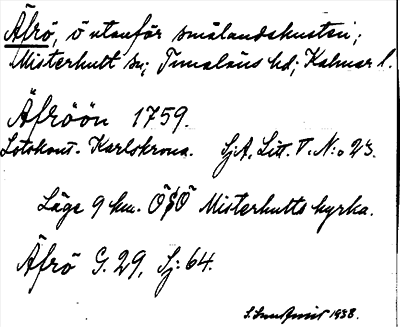 Äfrö, ö utanför smålandskusten;
Misterhult sn; Tunaläns hd; Kalmar l.
Äfröön 1759.
Lotskont. Karlskrona. SjA. Litt. V. N:o 23.
Läge 9 km. ÖSÖ Misterhults kyrka.
Äfrö G. 29, Sj: 64.
1938.